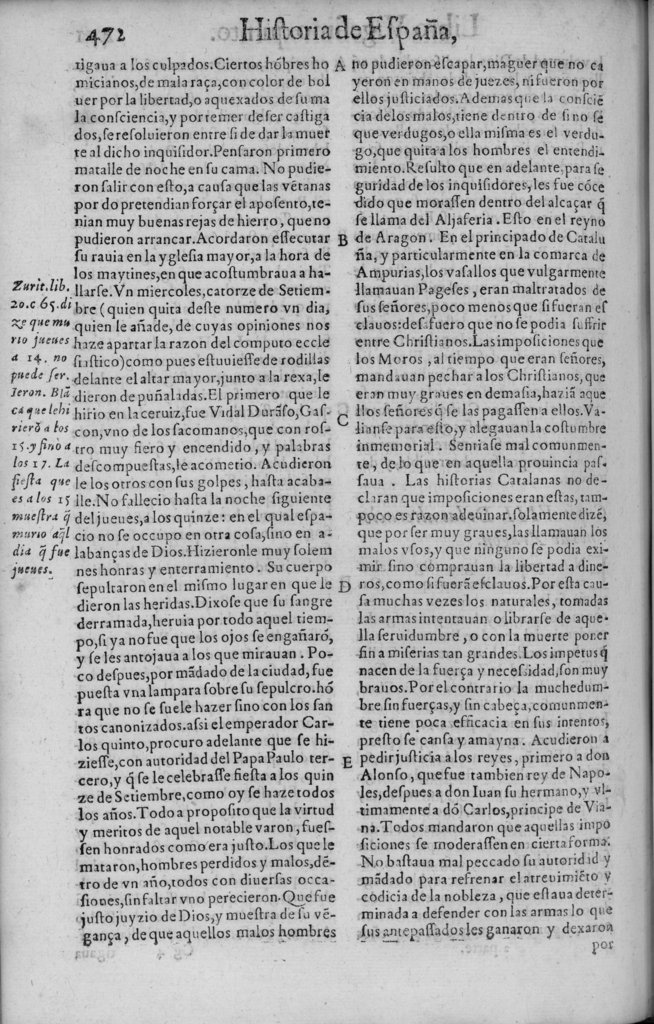 472 Historia de España,
tigaua a los culpados. Ciertos hõbres ho
micianos, de mala raça, con color de bol
uer por la libertad, o aquexados de su ma
la consciencia, y por temer de ser castiga
dos, se resoluieron entre si de dar la muer
te al dicho inquisidor. Pensaron primero
matalle de noche en su cama. No pudie-
ron salir con esto, a causa que las vẽtanas
por do pretendian forçar el aposento, te-
nian muy buenas rejas de hierro, que no
pudieron arrancar. Acordaron effecutar
su rauia en la yglesia mayor, a la hora de
los maytines, en que acostumbraua a ha-
llarse. Vn miercoles, catorze de Setiem-
bre (quien quita deste numero vn dia,
quien le añade, de cuyas opiniones nos
haze apartar la razon del computo eccle
siastico) como pues estuuiesse de rodillas
delante el altar mayor, junto a la rexa, le
dieron de puñaladas. El primero que le
hirio en la ceruiz, fue Vidal Durãso, Gas-
con, vno de los sacomanos, que con ros-
tro muy fiero y encendido, y palabras
descompuestas, le acometio. Acudieron
le los otros con sus golpes, hasta acaba-
lle. No fallecio hasta la noche siguiente
del jueues, a los quinze: en el qual espa-
cio no se occupo en otra cosa, sino en a-
labanças de Dios. Hizieronle muy solem
nes honras y enterramiento. Su cuerpo
sepultaron en el mismo lugar en que le
dieron las heridas. Dixose que su sangre
derramada, heruia por todo aquel tiem-
po, si ya no fue que los ojos se engañarõ,
y se les antojaua a los que mirauan. Po-
co despues, por mãdado de la ciudad, fue
puesta vna lampara sobre su sepulcro. hõ
ra que no se suele hazer sino con los san
tos canonizados. assi el emperador Car-
los quinto, procuro adelante que se hi-
ziesse, con autoridad del Papa Paulo ter-
cero, y q̃ se le celebrasse fiesta a los quin
ze de Setiembre, como oy se haze todos
los años. Todo a proposito que la virtud
y meritos de aquel notable varon, fues-
sen honrados como era justo. Los que le
mataron, hombres perdidos y malos, dẽ-
tro de vn año, todos con diuersas occa-
siones, sin faltar vno perecieron. Que fue
justo juyzio de Dios, y muestra de su vẽ-
gança, de que aquellos malos hombres
Zurit. lib.
20. c 65. di
ze que mu
rio jueues
a 14. no
puede ser.
Ieron. Blã
ca que le hi
rierõ a los
15. y fino a
los 17. La
fiesta que
es a los 15
muestra q̃
murio aq̃l
dia q̃ fue
jueues.
A
B
C
D
E
no pudieron escapar, maguer que no ca
yeron en manos de juezes, ni fueron por
ellos justiciados. Ademas que la consciẽ
cia de los malos, tiene dentro de si no sé
que verdugos, o ella misma es el verdu-
go, que quita a los hombres el entendi-
miento. Resulto que en adelante, para se
guridad de los inquisidores, les fue cõce
dido que morassen dentro del alcaçar q̃
se llama del Aljaferia. Esto en el reyno
de Aragon. En el principado de Catalu
ña, y particularmente en la comarca de
Ampurias, los vasallos que vulgarmente
llamauan Pageses, eran maltratados de
sus señores, poco menos que si fueran es
clauos: desafuero que no se podia suffrir
entre Christianos. Las imposiciones que
los Moros, al tiempo que eran señores,
mandauan pechar a los Christianos, que
eran muy graues en demasia, haziã aque
llos señores q̃ se las pagassen a ellos. Va-
lianse para esto, y alegauan la costumbre
inmemorial. Sentiase mal comunmen-
te, de lo que en aquella prouincia pas-
saua. Las historias Catalanas no de-
claran que imposiciones eran estas, tam-
poco es razon adeuinar. solamente dizẽ,
que por ser muy graues, las llamauan los
malos vsos, y que ninguno se podia exi-
mir sino comprauan la libertad a dine-
ros, como si fuerã esclauos. Por esta cau-
sa muchas vezes los naturales, tomadas
las armas intentauan o librarse de aque-
lla seruidumbre, o con la muerte poner
fin a miserias tan grandes. Los impetus q̃
nacen de la fuerça y necessidad, son muy
brauos. Por el contrario la muchedum-
bre sin fuerças, y sin cabeça, comunmen-
te tiene poca efficacia en sus intentos,
presto se cansa y amayna. Acudieron a
pedir justicia a los reyes, primero a don
Alonso, que fue tambien rey de Napo-
les, despues a don Iuan su hermano, y vl-
timamente a dõ Carlos, principe de Via-
na. Todos mandaron que aquellas impo
siciones se moderassen en cierta forma.
No bastaua mal peccado su autoridad y
mãdado para refrenar el atreuimiẽto y
codicia de la nobleza, que estaua deter-
minada a defender con las armas lo que
sus antepassados les ganaron y dexaron
por